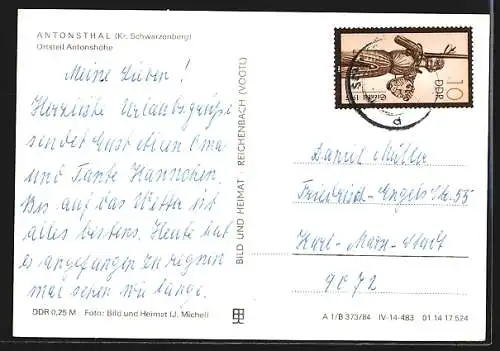 ANTONSTHAL (Kr. Schwarzenberg)
Ortsteil Antonshöhe
Meine Lieben!
Herzliche Urlaubsgrüße
sendet Euch Oma
und Tante Hannchen.
Bis auf das Wetter ist
alles bestens. Heute hat
es angefangen zu regnen
mal sehen wie lange.
DDR 0,25 M Foto: Bild und Heimat (J. Michel)
BILD UND HEIMAT · REICHENBACH (VOGTL)
10
DDR
Daniel Müller
Friedrich-Engels Str. 55
Karl-Marx-Stadt
9072
A 1/B 373/84 IV-14-483 01 14 17 524